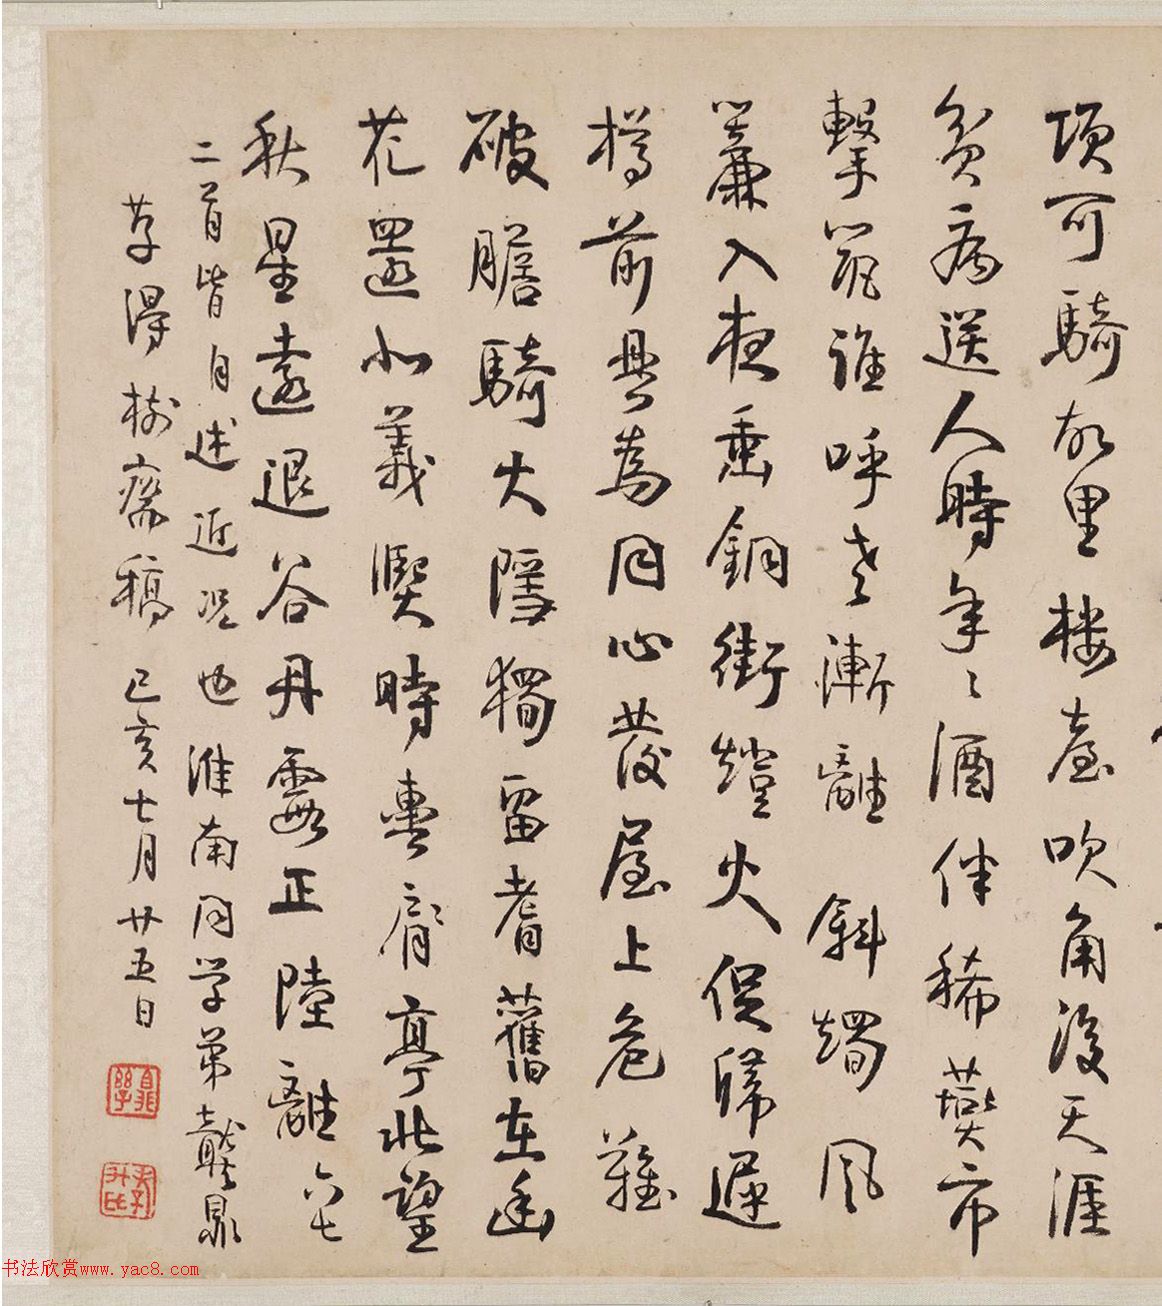 項可騎故里樓臺吹角後天涯
貧病送人時年〻酒伴稀燕市
擊筑誰呼老漸離 斜燭風
簾入夜垂銅街燈火促歸遲
樽前異為同心發屋上危難
破膽騎大隱獨留耆舊在幽
花還小義熙時 專肩亭北望
秋星遠退谷丹霞正陸離 六七
二首皆自述近況也 淮南同學弟龔鼎
孳得樹齋稿 己亥七月廿五日
書法欣賞www.yac8.com